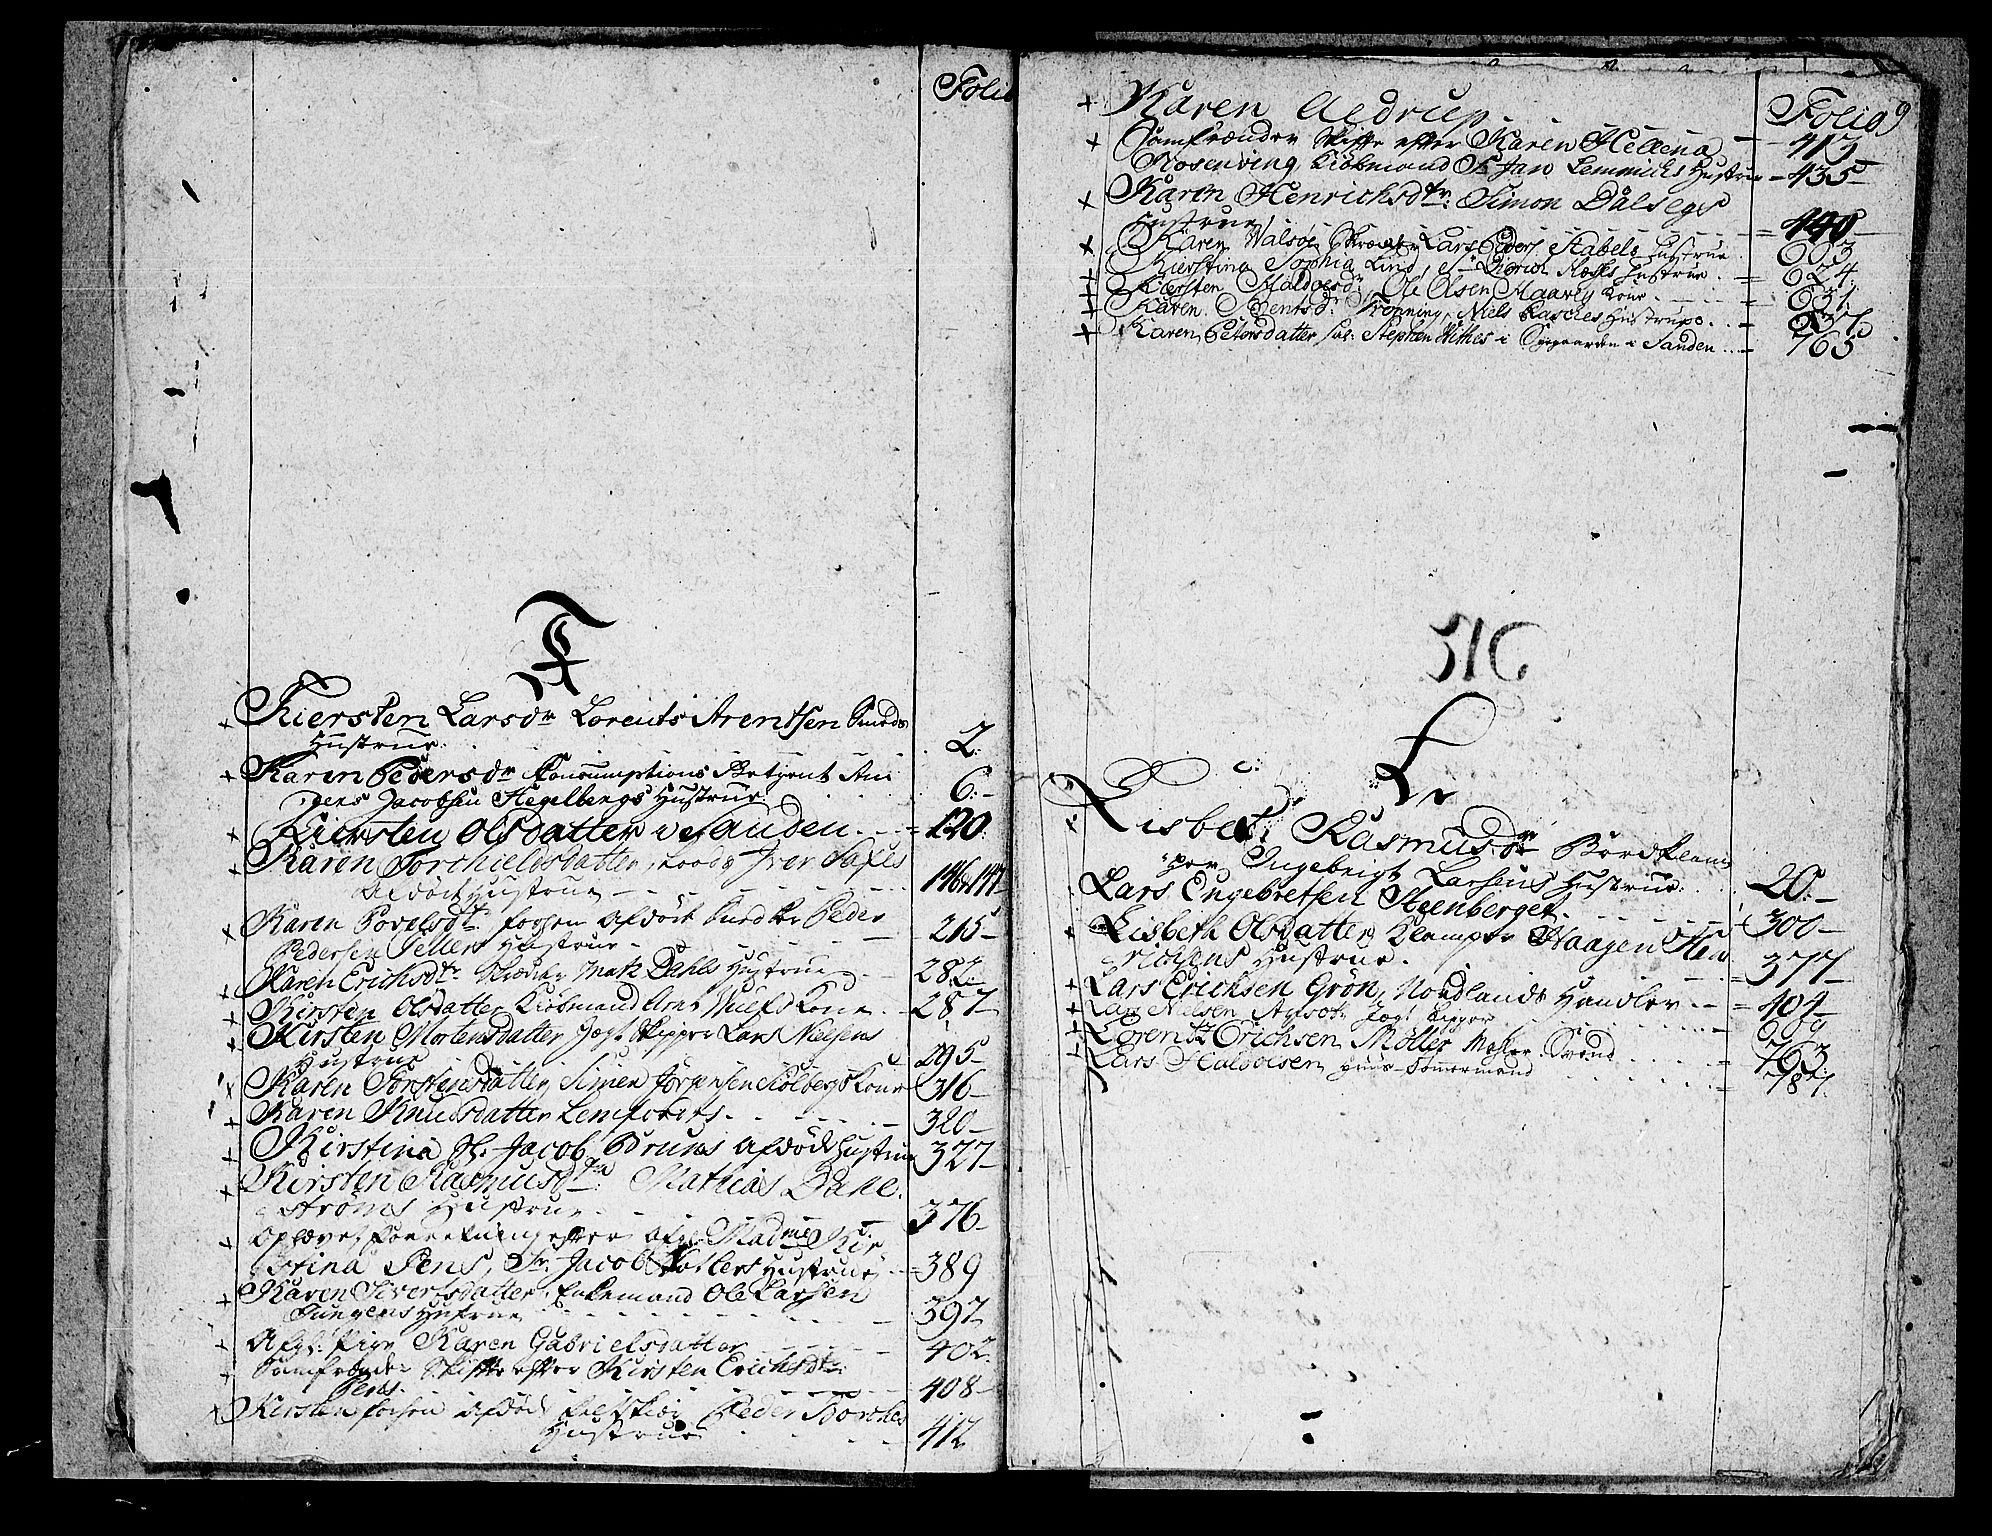 Folio
K
+ Kiersten Larsdr Lorents Arentsen Smeds
Hustrue. 2.
+ Karen Pedersdr Consumptions Betient An¡
Jens Jacobsen Hegelbergs Hustrue 6.-
+ Kiersten Olsdatter i Sanden. 120.
+ Karen Torchieldsdatter, Iver Saxes
afdöde Hustrue 146 & 147
+ Karen Povelsdtr afdöde Peder
Pedersen Tellers Hustrue 215-
+ Karen Erichsdtr Mats Dahls Hustrue 282
+ Kirsten Olsdatter Kiöbmand Arnt Kone 287-
+ Kirsten Mortensdatter Jægt Skipper Lars Nielsens
Hustrue 295-
+ Karen Torstensdatter, Simen Jörgensen Kolbergs Kone 316-
+ Karen Knudsdatter Lemforts. 320-
+ Kirstina Sl. Jacob Bruns afdöde Hustrue 327-
+ Kirsten Rasmusdtr: Mathias Dahl
ströms Hustrue 376-
+ efter afgl. Madme Kir
stina Pens, Sr. Jacob Hustrue 389
+ Karen Siversdatter, Enkemand Ole Larsen
Hustrue 397
+ Afgl: Pige Karen Gabrielsdatter 402.
+ Samfrænder Skifte efter Kirsten Erichsdtr:
Pens. 408-
+ Kirsten afdöde Peder Borches
Hustrue 412
Folio 9
+ Karen Aedrup. 413
+ Samfrænder Skifte efter Karen Hellena
Rosenving, Kiöbmand Sr Jan Lemmichs Hustrue - 435-
+ Karen Henrichsdtr: Simon Dalsegs
Hustrue 440
+ Karen Walsöe, Skræder Lars Peders. Stabels Hustrue. 603
+ Kierstina Sophia Lind, Sr Diderich Hustrue. 624.
+ Kiersten Haldorsdr Ole Olsen Haarey Kone. 631.
+ Karen Bentsdr Trönning, Niels Rasches Hustrue. 657.
+ Karen Petersdatter, sal: Stephen Withes i Sygaarden i Sanden 765
L
+ Lisbet Rasmusdr
Ingebrigt Larsens Hustrue. 20.-
Lars Engebretsen Steenberget. 300-
+ Lisbeth Olsdatter, Klamper Haagen Hen
richsens Hustrue. 377-
+ Lars Erichsen Grön, Nordlands Handler 404-
+ Lars Nielsen Jægt Skipper 609
+ Lorentz Erichsen Möller Svend 763
+ Lars Haldorsen Huus-Tömmermand 787.